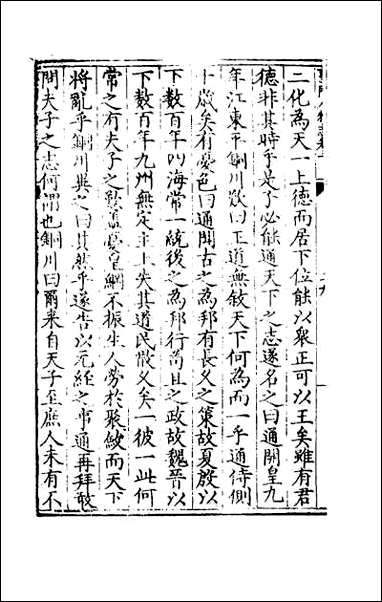 二化為天一上德而居下位能以衆正可以王矣雖有君
德非其時乎是子必能通天下之志遂名之曰通開皇九
年江東平銅川歎曰王道無敘天下何為而一乎通侍側
十歲矣有憂色曰通聞古之為邦有長久之策故夏殷以
下數百年四海常一統後之為邦行苟且之政故魏晉以
下數百年九州無定主上失其道民散久矣一彼一此何
常之有夫子之歎蓋憂皇綱不振生人勞於聚斂而天下
將亂乎銅川異之曰其然乎遂告以元經之事通再拜敢
問夫子之志何謂也銅川曰爾來自天子至庶人未有不